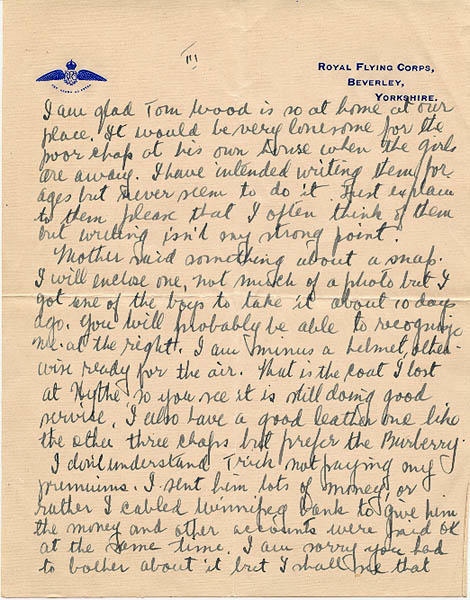 III
ROYAL FLYING CORPS,
BEVERLEY,
YORKSHIRE.
I am glad Tom Wood is so at home at our
place. It would be very lonesome for the
poor chap at his own house when the girls
are away. I have intended writing them for
ages but never seem to do it. Just explain
to them please that I often think of them
but writing isn't my strong point.
Mother said something about a snap.
I will enclose one, not much of a photo but I
got one of the boys to take it about 10 days
ago. You will probably be able to recognize
me at the right. I am minus a helmet, other-
wise ready for the air. That is the coat I lost
at Hythe so you see it is still doing good
service. I also have a good leather one like
the other three chaps but prefer the Burberry.
I don't understand not paying my
premiums. I sent him lots of money, or
rather I cabled Winnipeg bank to give him
the money and other accounts were paid OK
at the same time. I am sorry you had
to bother about it but I shall see that